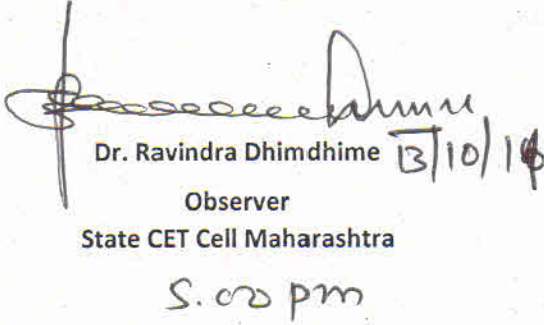 Dr. Ravindra Dhimdhime 13/10/16
Observer
State CET Cell Maharashtra
5.00 pm